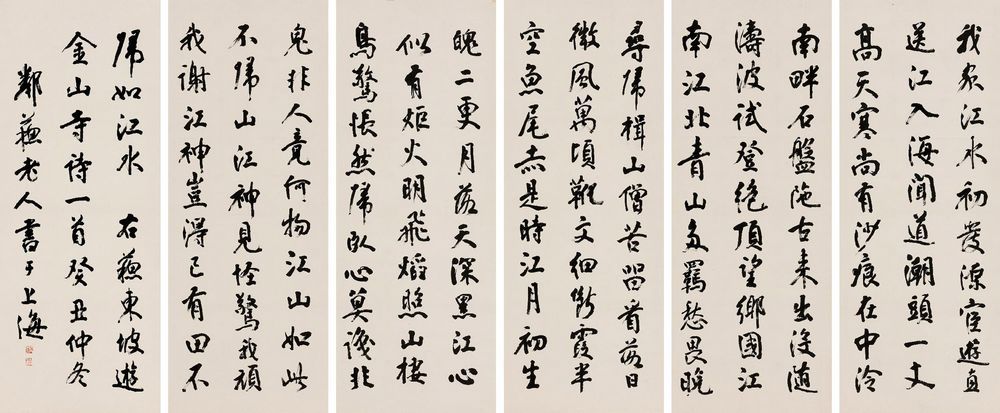 我家江水初發源宦遊直
送江入海聞道潮頭一丈
高天寒尚有沙痕在中泠
南畔石盤陁古來出沒隨
濤波試登絕頂望鄉國江
南江北青山多羈愁畏晚
尋歸楫山僧苦留看落日
微風萬頃鞾文細斷霞半
空魚尾赤是時江月初生
魄二更月落天深黑江心
似有炬火明飛熖照山棲
鳥驚悵然歸臥心莫識非
鬼非人竟何物江山如此
不歸山江神見怪驚我頑
我謝江神豈得已有田不
歸如江水 右蘇東坡遊
金山寺詩一首癸丑仲冬
鄰蘇老人書于上海